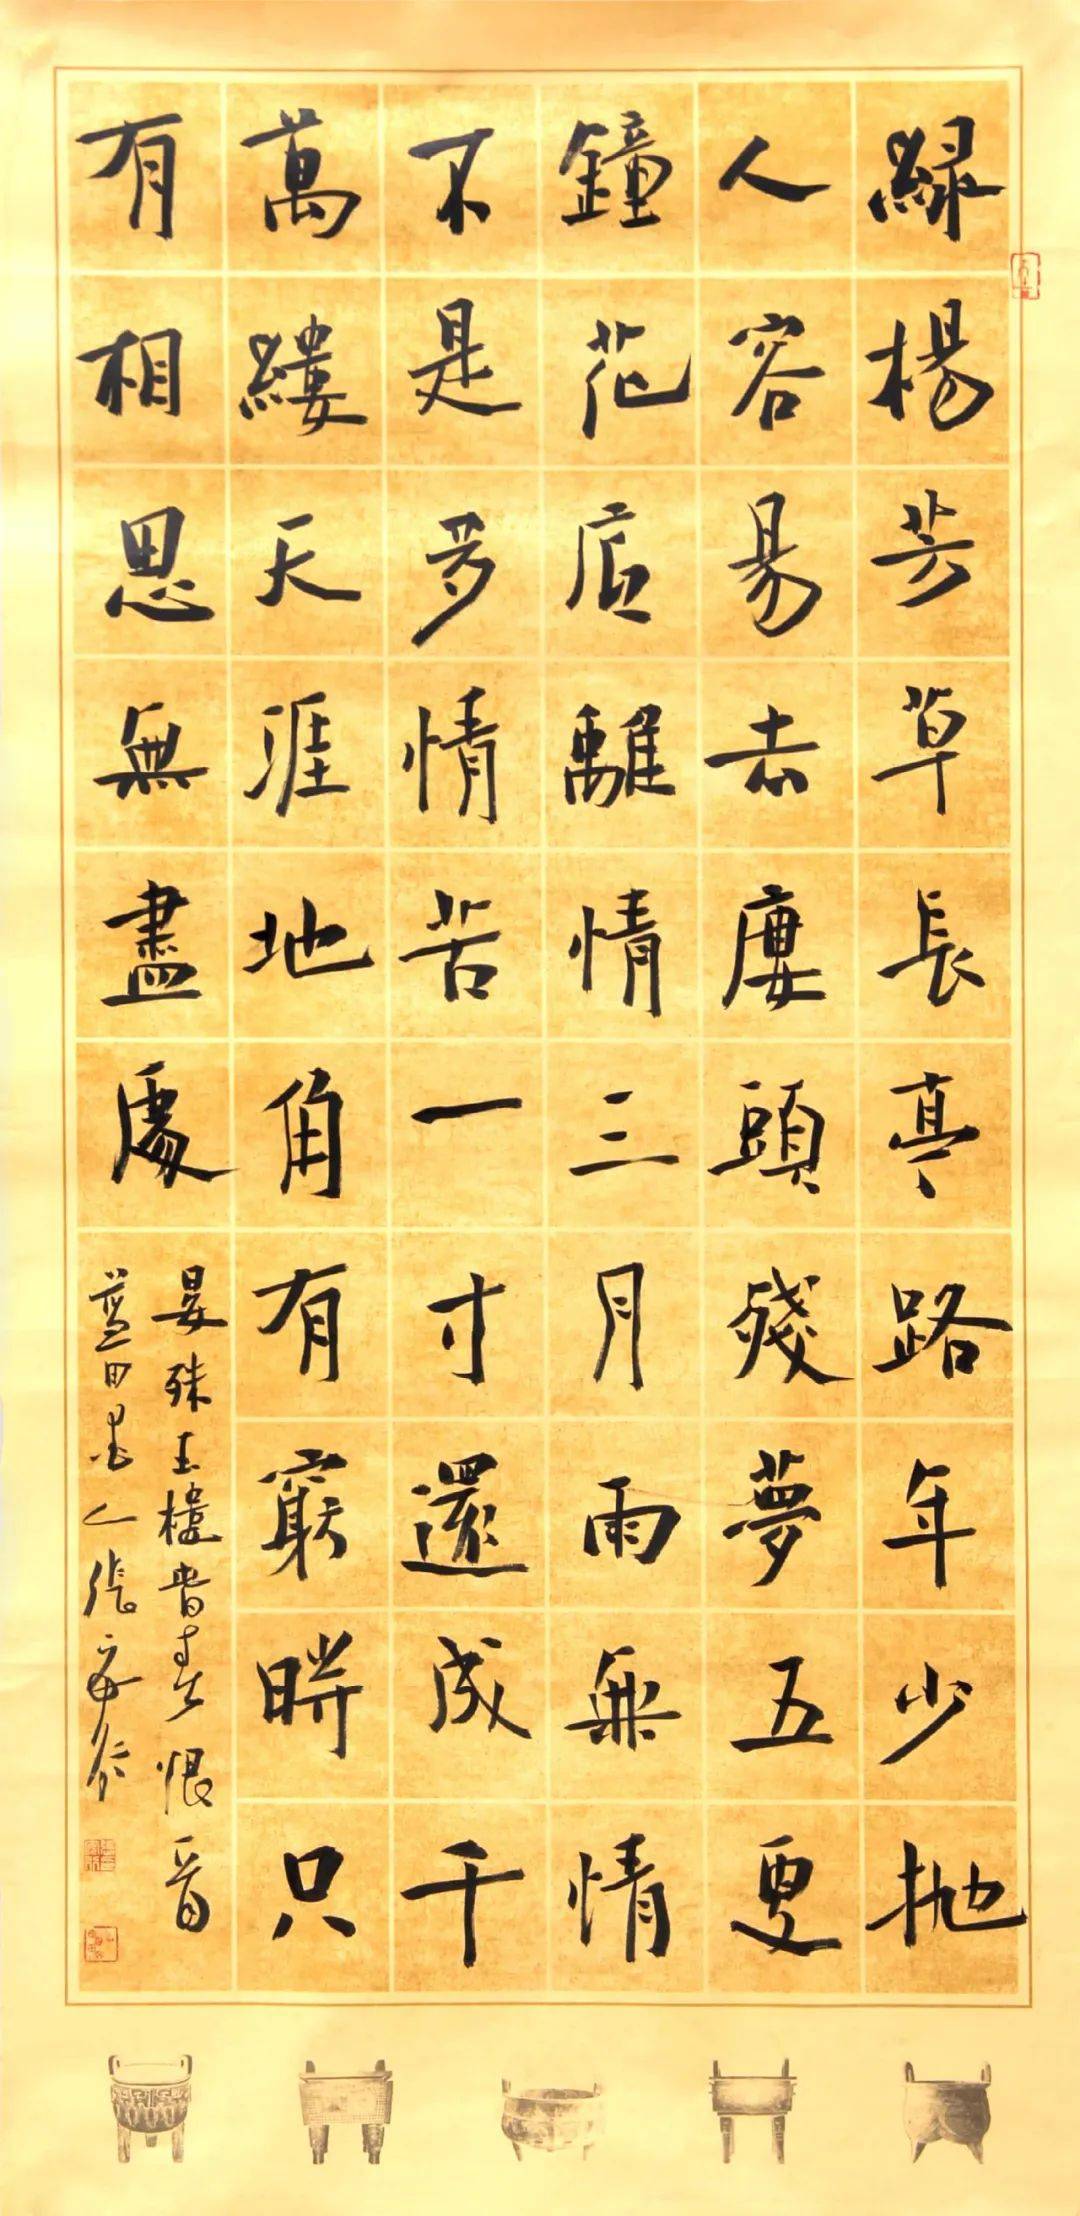 緑楊芳草長亭路年少抛
人容易去廔頭殘夢五更
鐘花底離情三月雨無情
不是多情苦一寸還成千
萬縷天涯地角有窮時只
有相思無盡處
晏殊玉樓春春恨首
藍田書人張